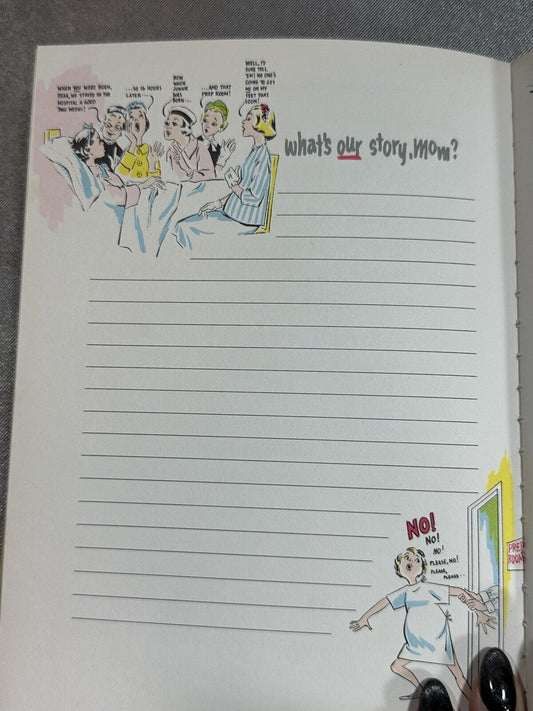 WHEN YOU WERE BORN,
DEAR, WE STAYED IN THE
HOSPITAL A GOOD
TWO WEEKS!
...30 HOURS
LATER...
NOW
WHEN
JUNIOR
WAS
BORN...
...AND THAT
PREP ROOM!
WELL, I'D
SURE TELL
'EM! NO ONE'S
GOING TO GET
ME ON MY
FEET THAT
SOON!
what's our story, mom?
NO!
NO!
NO!
PLEASE, NO!
PLEASE,
PLEASE..
PREP
ROOM